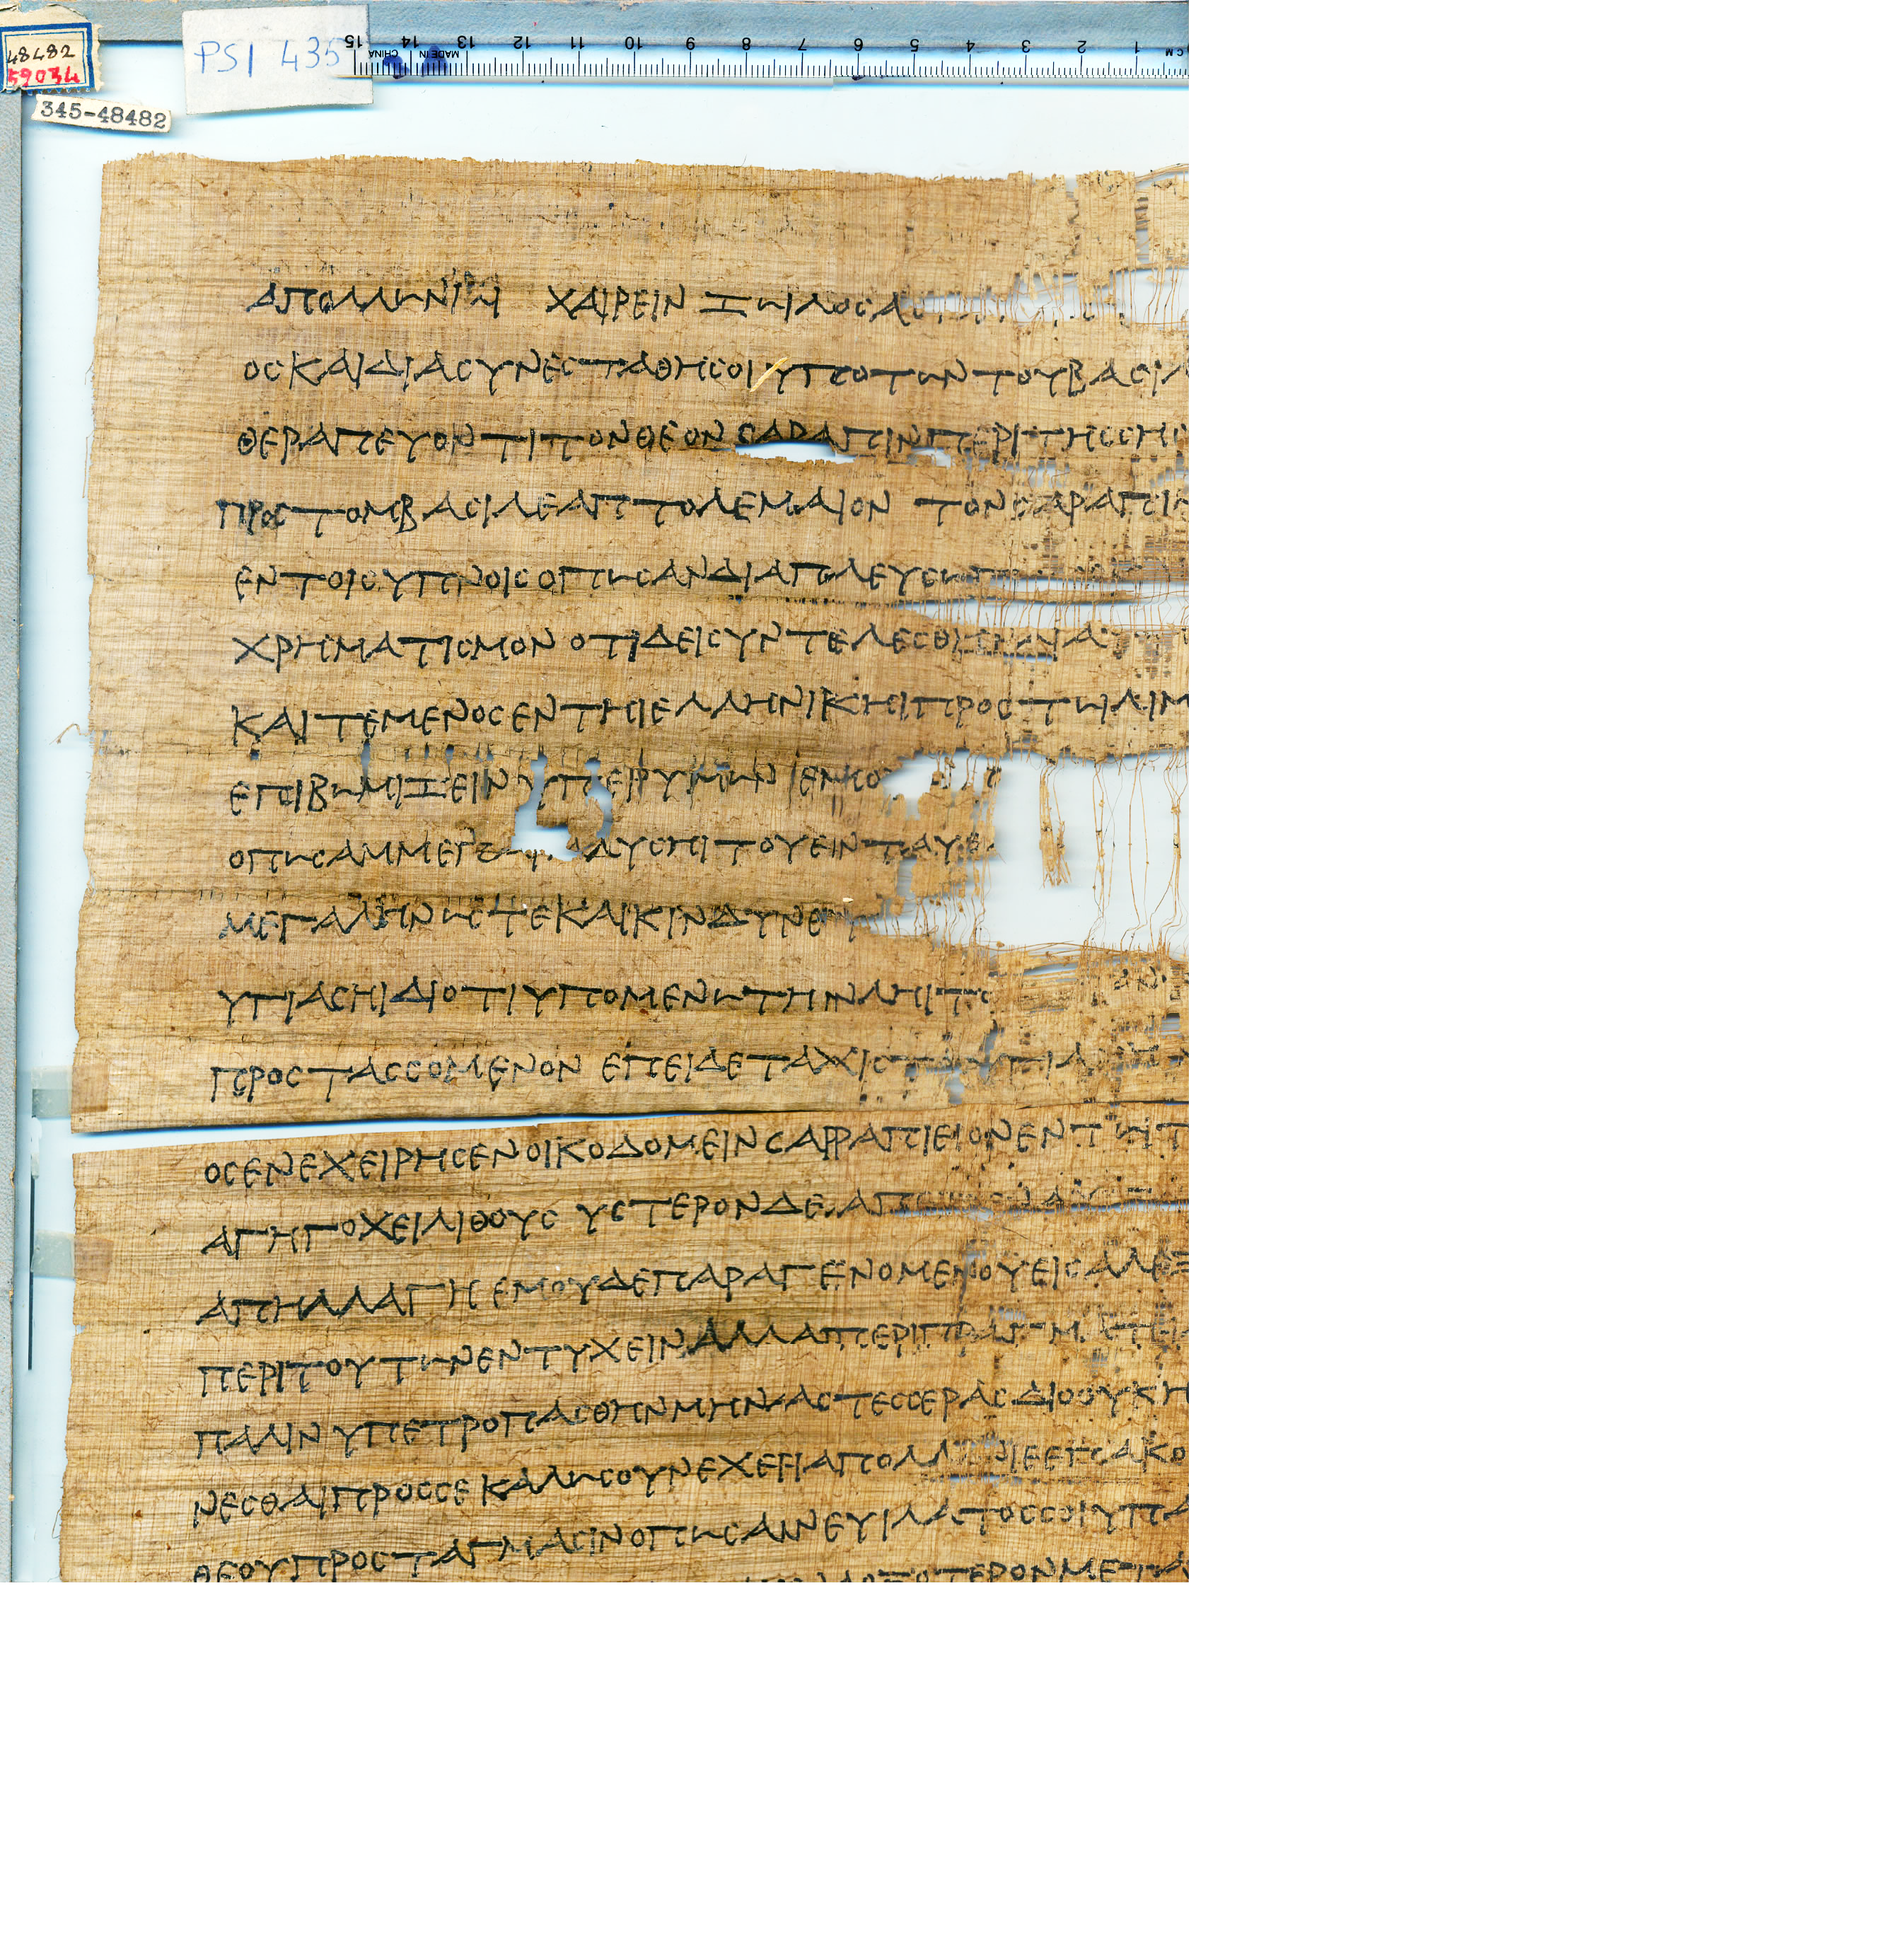 48482
59034
PSI 435
345-48482
15 14 13 12 11 10 9 8 7 6 5 4 3 2 1 CM
MADE IN CHINA
ΑΠΟΛΛΩΝΙΩΙ ΧΑΙΡΕΙΝ ΖΩΙΛΟΣ
ΟΣ ΚΑΙ ΔΙΑΣΥΝΕΣΤΑΘΗ ΣΟΙ ΥΠΟ ΤΩΝ ΤΟΥ ΒΑΣΙΛ
ΘΕΡΑΠΕΥΟΝΤΙ ΤΟΝ ΘΕΟΝ ΣΑΡΑΠΙΝ ΠΕΡΙ ΤΗΣ ΣΗΣ
ΠΡΟΣ ΤΟΜ ΒΑΣΙΛΕΑ ΠΤΟΛΕΜΑΙΟΝ ΤΟΝ ΣΑΡΑΠΙΝ
ΕΝ ΤΟΙΣ ΥΠΝΟΙΣ ΟΠΩΣ ΑΝ ΔΙΑΠΛΕΥΣΩ
ΧΡΗΜΑΤΙΣΜΟΝ ΟΤΙ ΔΕΙ ΣΥΝΤΕΛΕΣΘΗΝΑΙ
ΚΑΙ ΤΕΜΕΝΟΣ ΕΝ ΤΗΙ ΕΛΛΗΝΙΚΗΙ ΠΡΟΣ ΤΩΙ ΛΙΜ
ΕΠΙΒΩΜΙΖΕΙΝ ΥΠΕΡ ΥΜΩΝ
ΟΠΩΣ ΑΜ ΜΕ ΛΥΣΗΙ ΤΟΥ ΕΙΝΤΑΥΘ
ΜΕΓΑΛΗΝ ΩΣΤΕ ΚΑΙ ΚΙΝΔΥΝΕΥ
ΥΓΙΑΣΗΙ ΔΙΟΤΙ ΥΠΟΜΕΝΩ ΤΗΝ ΛΗΙΤΟ
ΠΡΟΣΤΑΣΣΟΜΕΝΟΝ ΕΠΕΙ ΔΕ ΤΑΧΙΣΤΑ ΥΓΙΑΣΘΗΝ
ΟΣ ΕΝΕΧΕΙΡΗΣΕΝ ΟΙΚΟΔΟΜΕΙΝ ΣΑΡΑΠΙΕΙΟΝ ΕΝ ΤΩΙ Τ
ΑΓΗΓΟΧΕΙ ΛΙΘΟΥΣ ΥΣΤΕΡΟΝ ΔΕ
ΑΠΗΛΛΑΓΗ ΕΜΟΥ ΔΕ ΠΑΡΑΓΕΝΟΜΕΝΟΥ ΕΙΣ ΑΛΕΞ
ΠΕΡΙ ΤΟΥΤΩΝ ΕΝΤΥΧΕΙΝ ΑΛΛΑ ΠΕΡΙ ΠΡΑΓΜΑΤΕΙΑ
ΠΑΛΙΝ ΥΠΕΤΡΟΠΑΣΘΗΝ ΜΗΝΑΣ ΤΕΣΣΕΡΑΣ ΔΙΟ ΟΥΚ Η
ΝΕΣΘΑΙ ΠΡΟΣ ΣΕ ΚΑΛΩΣ ΟΥΝ ΕΧΕΙ ΑΠΟΛΛΩΝΙΕ ΕΠΑΚΟ
ΘΕΟΥ ΠΡΟΣΤΑΓΜΑΣΙΝ ΟΠΩΣ ΑΝ ΕΥΙΛΑΤΟΣ ΣΟΙ ΥΠΑ
ΟΤΕΡΟΝ ΜΕ